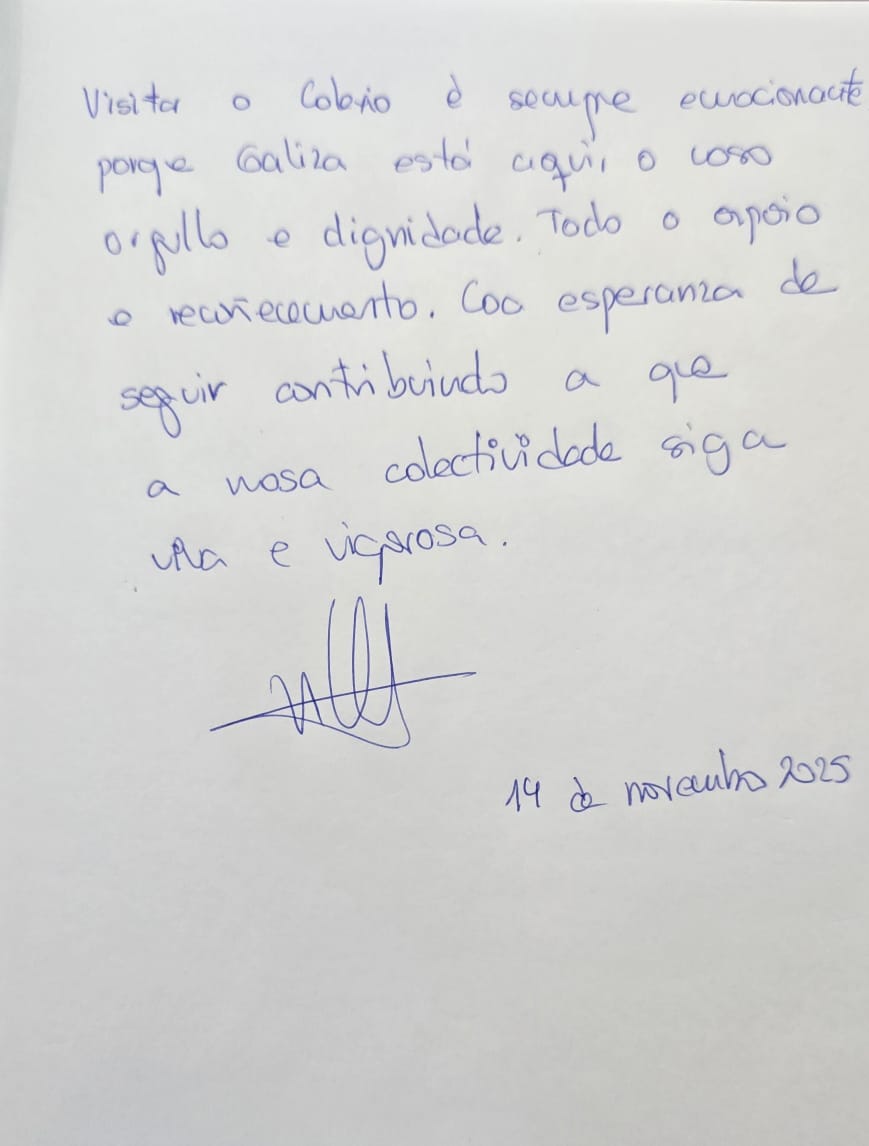 Visitar o Colexio é sempre emocionante
porque Galiza está aquí, o noso
orgullo e dignidade. Todo o apoio
e recoñecemento. Coa esperanza de
seguir contribuindo a que
a nosa colectividade siga
viva e vigorosa.
14 de novembro 2025